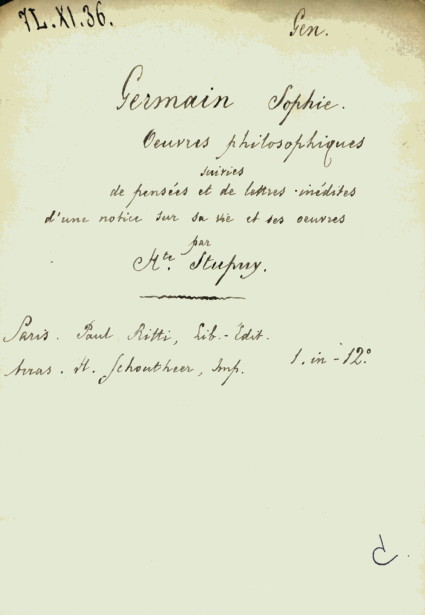 7L.XI.36.
Gen.
Germain Sophie.
Oeuvres philosophiques
suivies
de pensées et de lettres inédites
d'une notice sur sa vie et ses oeuvres
par
Hte. Stupuy.
Paris. Paul Ritti, Lib.-Edit.
Arras. H. Schoutheer, Imp. 1. in-12°